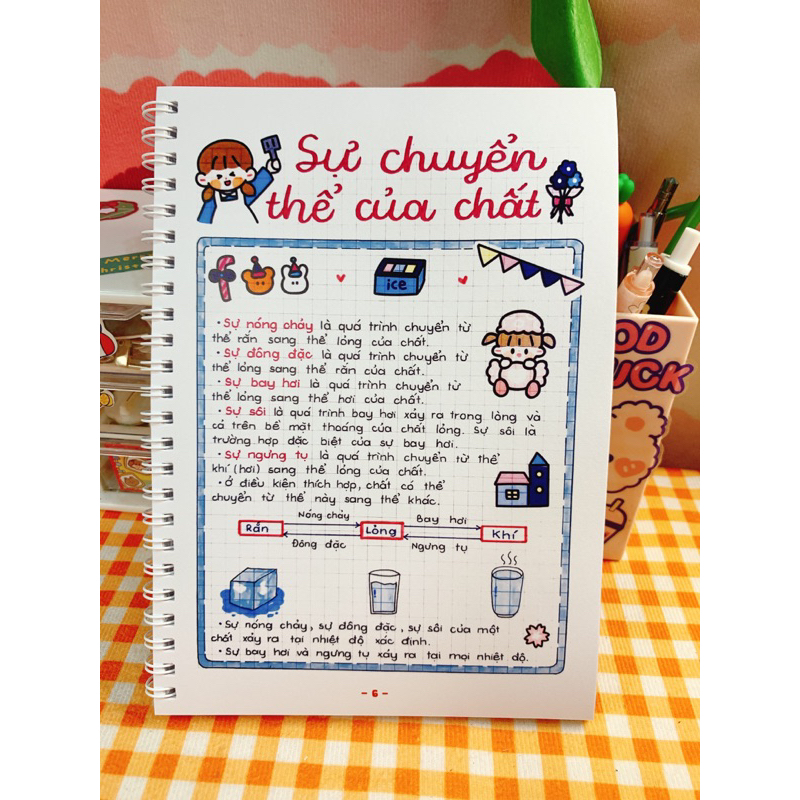 Sự chuyển
thể của chất
ice
• Sự nóng chảy là quá trình chuyển từ
thể rắn sang thể lỏng của chất.
• Sự đông đặc là quá trình chuyển từ
thể lỏng sang thể rắn của chất.
• Sự bay hơi là quá trình chuyển từ
thể lỏng sang thể hơi của chất.
• Sự sôi là quá trình bay hơi xảy ra trong lòng và
cả trên bề mặt thoáng của chất lỏng. Sự sôi là
trường hợp đặc biệt của sự bay hơi.
• Sự ngưng tụ là quá trình chuyển từ thể
khí (hơi) sang thể lỏng của chất.
• Ở điều kiện thích hợp, chất có thể
chuyển từ thể này sang thể khác.
Nóng chảy
Bay hơi
Rắn
Lỏng
Khí
Đông đặc
Ngưng tụ
• Sự nóng chảy, sự đông đặc, sự sôi của một
chất xảy ra tại nhiệt độ xác định.
• Sự bay hơi và ngưng tụ xảy ra tại mọi nhiệt độ.
- 6 -